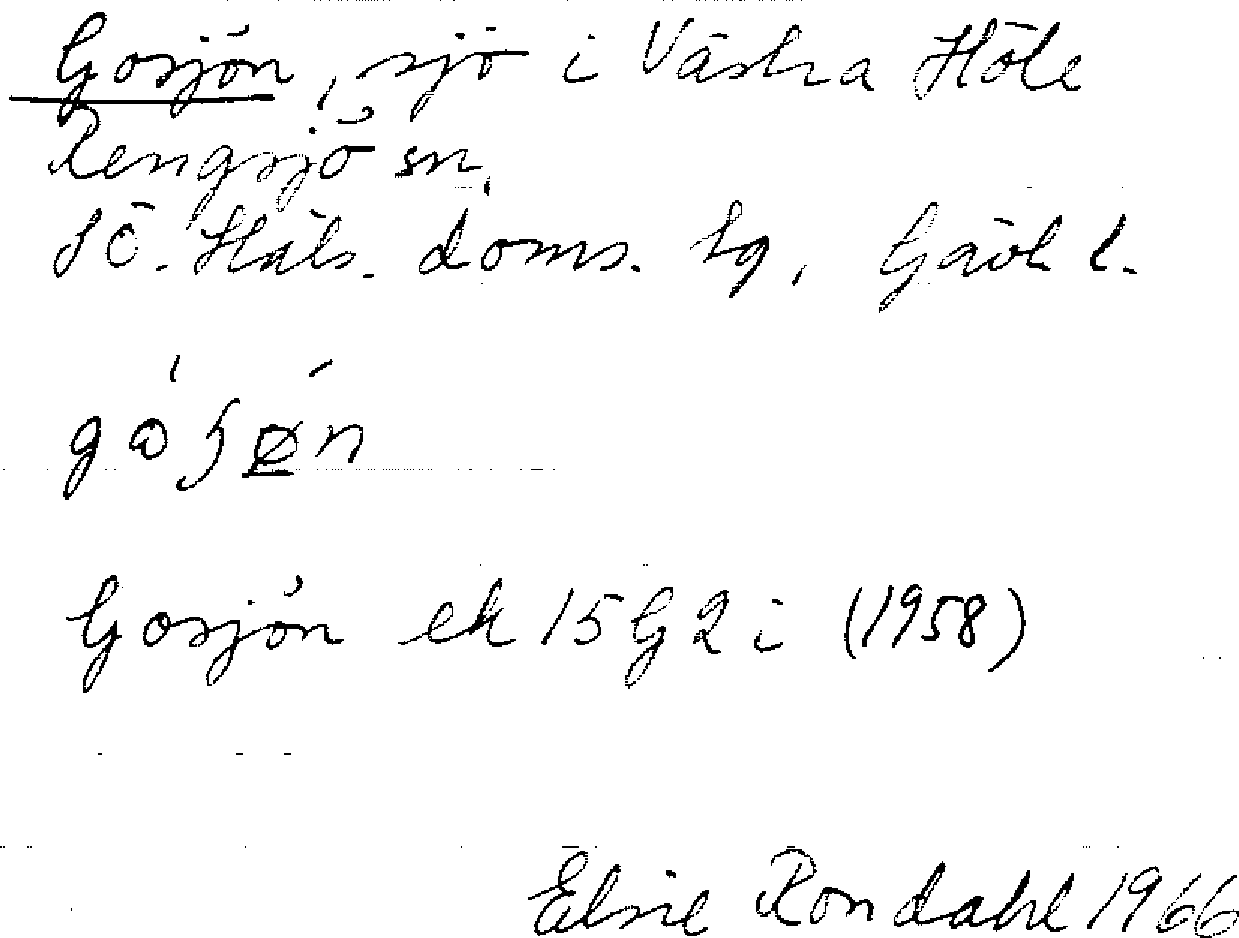 Gosjön, sjö i Västra Höle
Rengsjö sn,
SÖ. Häls. doms. tg, Gävl l.
Gosjön ek 15G2i (1958)
Elsie Rondahl 1966